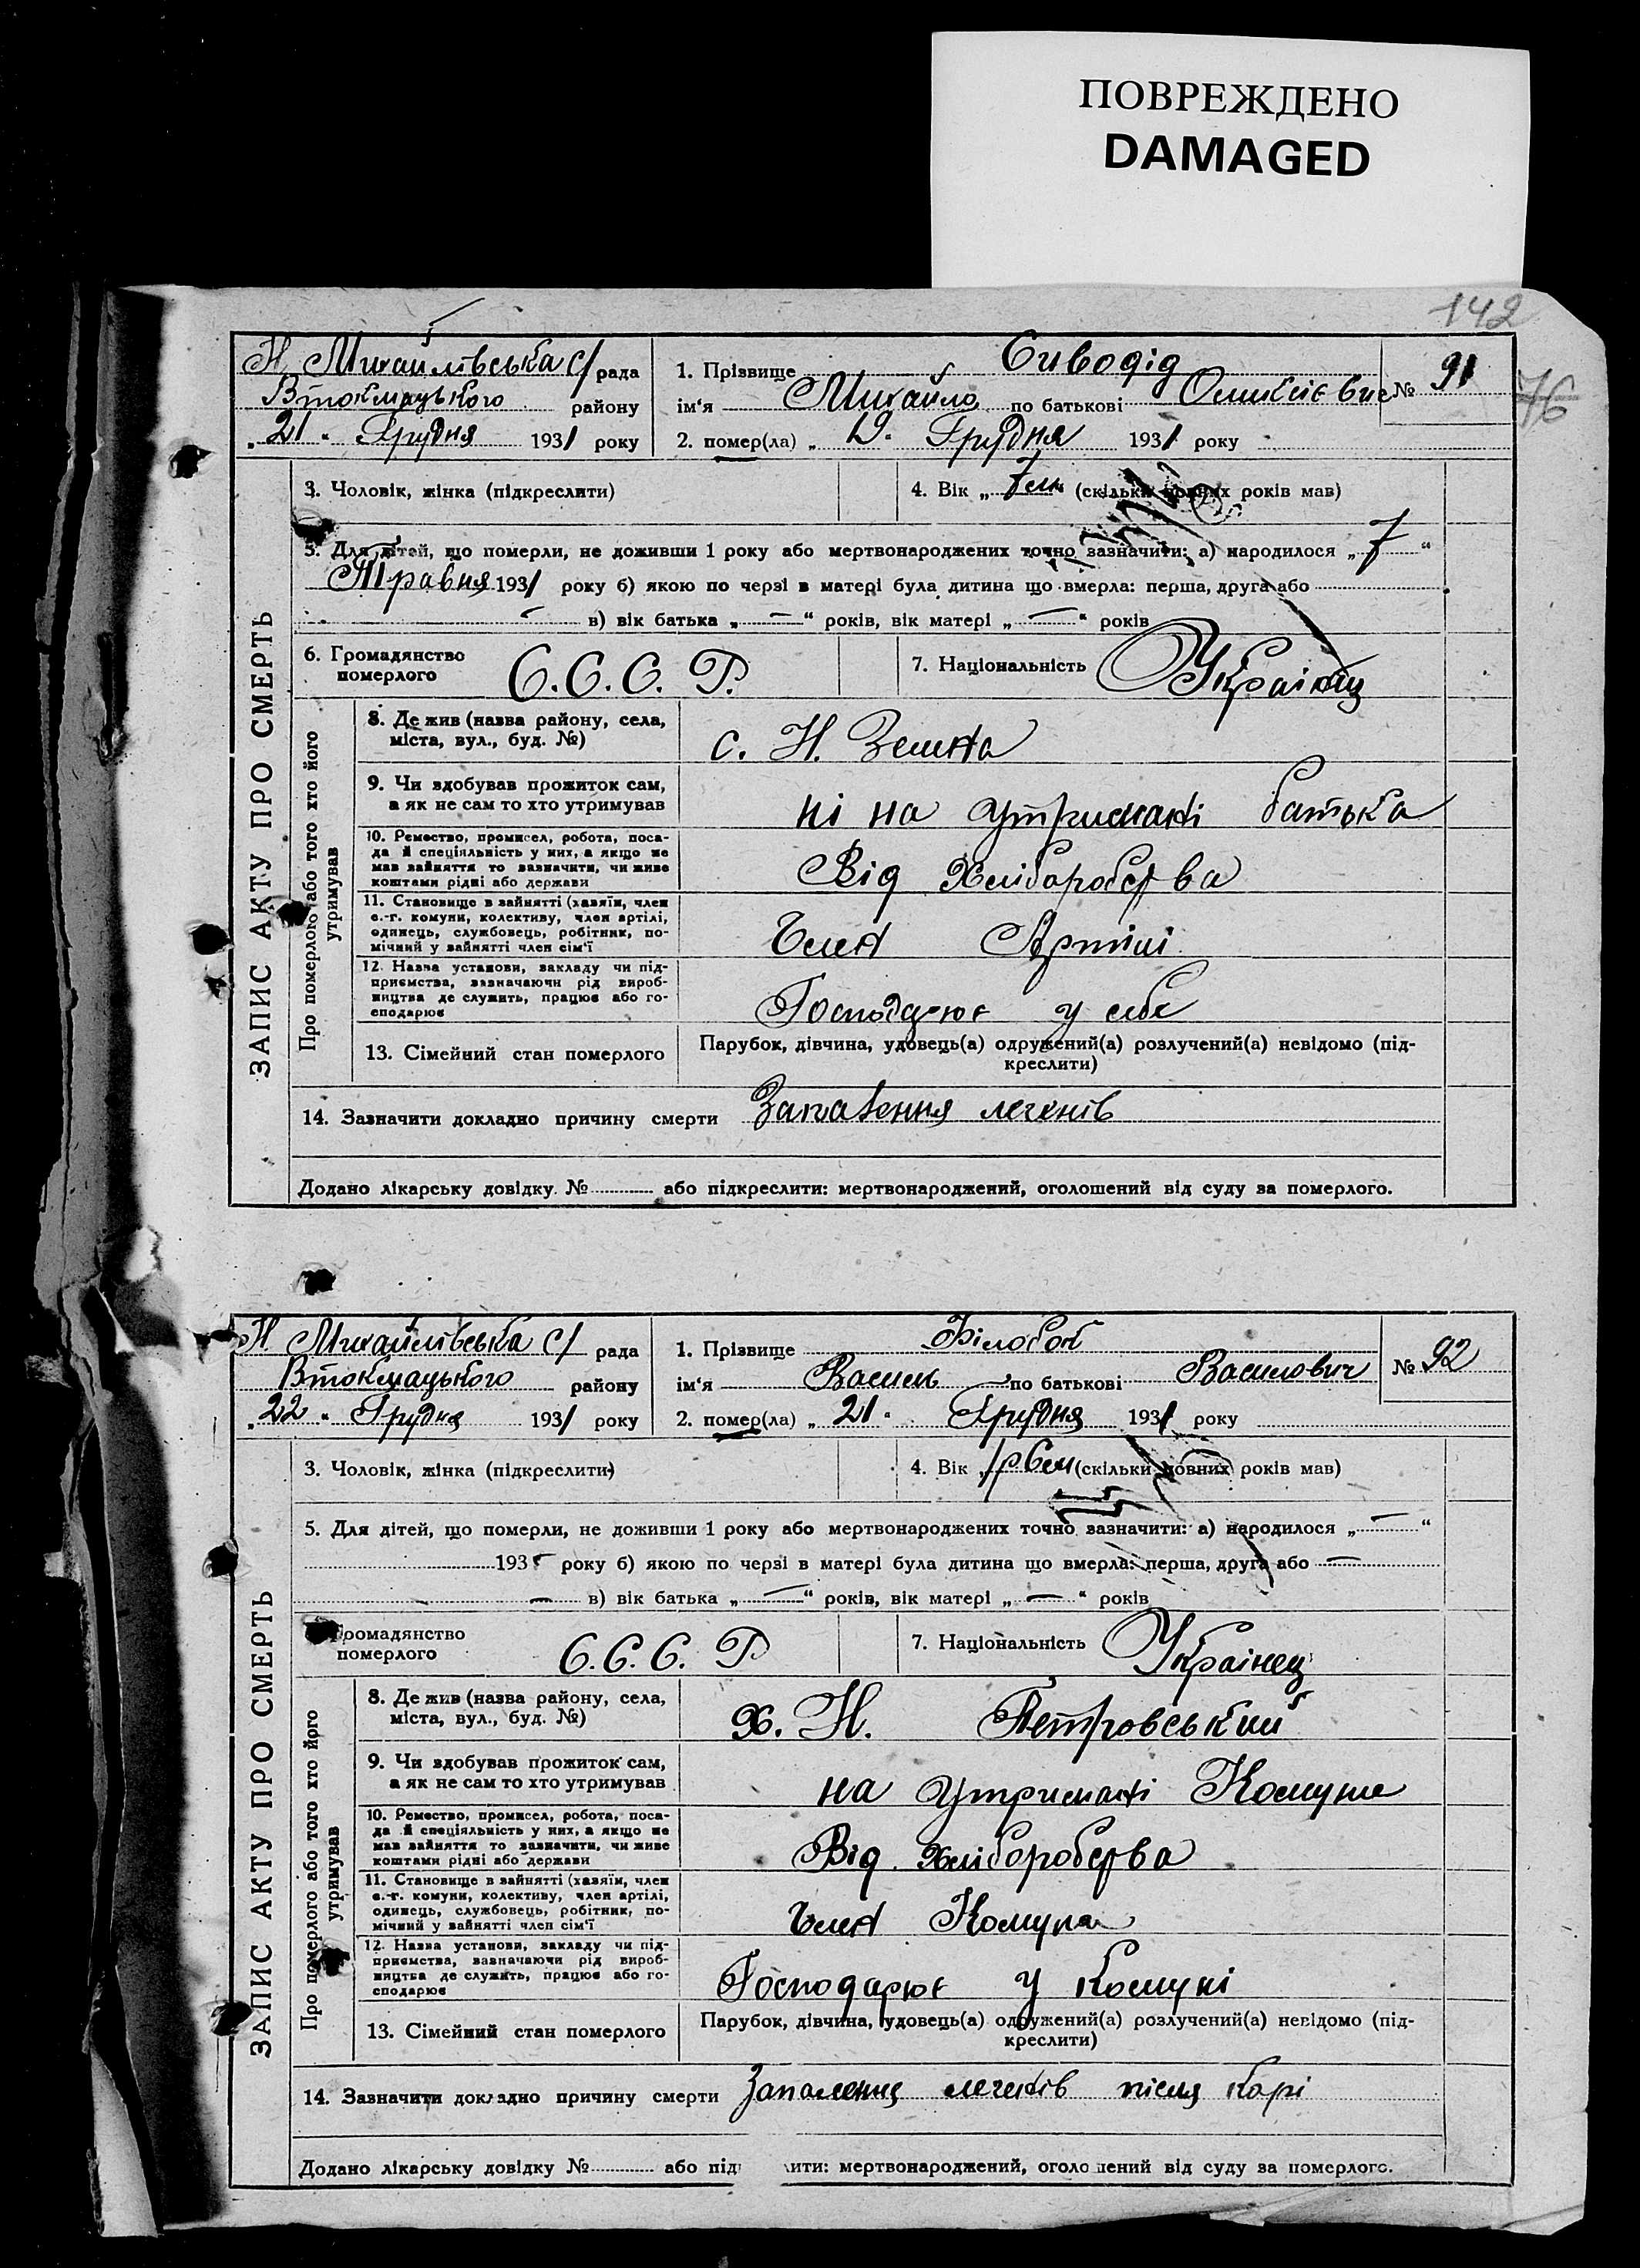 ПОВРЕЖДЕНО
DAMAGED
142
76
Н. Михайлівська с/ рада
Втокмацького району
„21" Грудня 1931 року
1. Прізвище Сиводід
ім'я Михайло по батькові
2. помер(ла) „ Грудня 1931 року
№ 91
ЗАПИС АКТУ ПРО СМЕРТЬ
3. Чоловік, жінка (підкреслити)
4. Вік „7 (скільки повних років мав)
5. Для дітей, що померли, не доживши 1 року або мертвонароджених точно зазначити: а) народилося „7"
Травня 1931 року б) якою по черзі в матері була дитина що вмерла: перша, друга або
в) вік батька „—" років, вік матері „—" років
6. Громадянство
померлого С.С.С.Р.
7. Національність Українец
Про померлого або того хто його
утримував
8. Де жив (назва району, села,
міста, вул., буд. №)
с. Н. Зелена
9. Чи здобував прожиток сам,
а як не сам то хто утримував
ні на утримані батька
10. Ремество, промисел, робота, поса-
да й спеціяльність у них, а якщо не
мав зайняття то зазначити, чи живе
коштами рідні або держави
Від Хліборобства
11. Становище в зайнятті (хазяїн, член
с.-г. комуни, колективу, член артілі,
одинець, службовець, робітник, по-
мічний у зайнятті член сім'ї
Член Артілі
12. Назва установи, закладу чи під-
приємства, зазначаючи рід вироб-
ництва де служить, працює або го-
сподарює
Господарює у себе
13. Сімейний стан померлого
Парубок, дівчина, удовець(а) одружений(а) розлучений(а) невідомо (під-
креслити)
14. Зазначити докладно причину смерти Запалення легенів
Додано лікарську довідку № або підкреслити: мертвонароджений, оголошений від суду за померлого.
Н. Михайлівська с/ рада
Втокмацького району
„22" Грудня 1931 року
1. Прізвище Білобок
ім'я Василь по батькові Василович
2. помер(ла) „21" Грудня 1931 року
№ 92
ЗАПИС АКТУ ПРО СМЕРТЬ
3. Чоловік, жінка (підкреслити)
4. Вік „1р 6 (скільки повних років мав)
5. Для дітей, що померли, не доживши 1 року або мертвонароджених точно зазначити: а) народилося „—"
193 року б) якою по черзі в матері була дитина що вмерла: перша, друга або —
— в) вік батька „—" років, вік матері „—" років
Громадянство
померлого С.С.С.Р
7. Національність Українец
Про померлого або того хто його
утримував
8. Де жив (назва району, села,
міста, вул., буд. №)
х. Н. Петровський
9. Чи здобував прожиток сам,
а як не сам то хто утримував
на утримані Комуни
10. Ремество, промисел, робота, поса-
да й спеціяльність у них, а якщо не
мав зайняття то зазначити, чи живе
коштами рідні або держави
Від Хліборобства
11. Становище в зайнятті (хазяїн, член
с.-г. комуни, колективу, член артілі,
одинець, службовець, робітник, по-
мічний у зайнятті член сім'ї
Член Комуна
12. Назва установи, закладу чи під-
приємства, зазначаючи рід вироб-
ництва де служить, працює або го-
сподарює
Господарює у Комуні
13. Сімейний стан померлого
Парубок, дівчина, удовець(а) одружений(а) розлучений(а) невідомо (під-
креслити)
14. Зазначити докладно причину смерти Запалення легенів після корі
Додано лікарську довідку № або мертвонароджений, оголошений від суду за померлого.